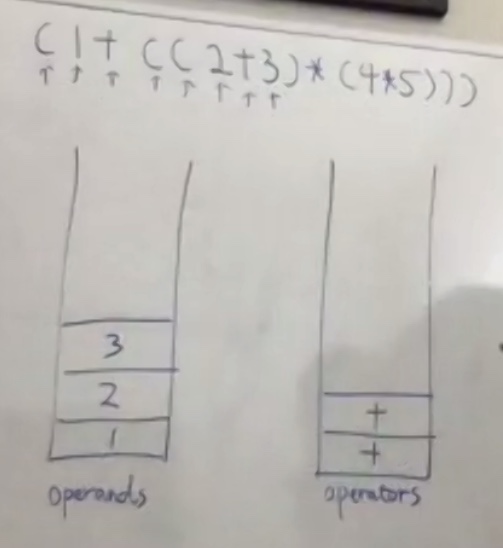 (1+((2+3)*(4*5)))
↑ ↑ ↑ ↑ ↑ ↑ ↑ ↑
3
2
1
operands
+
+
operators